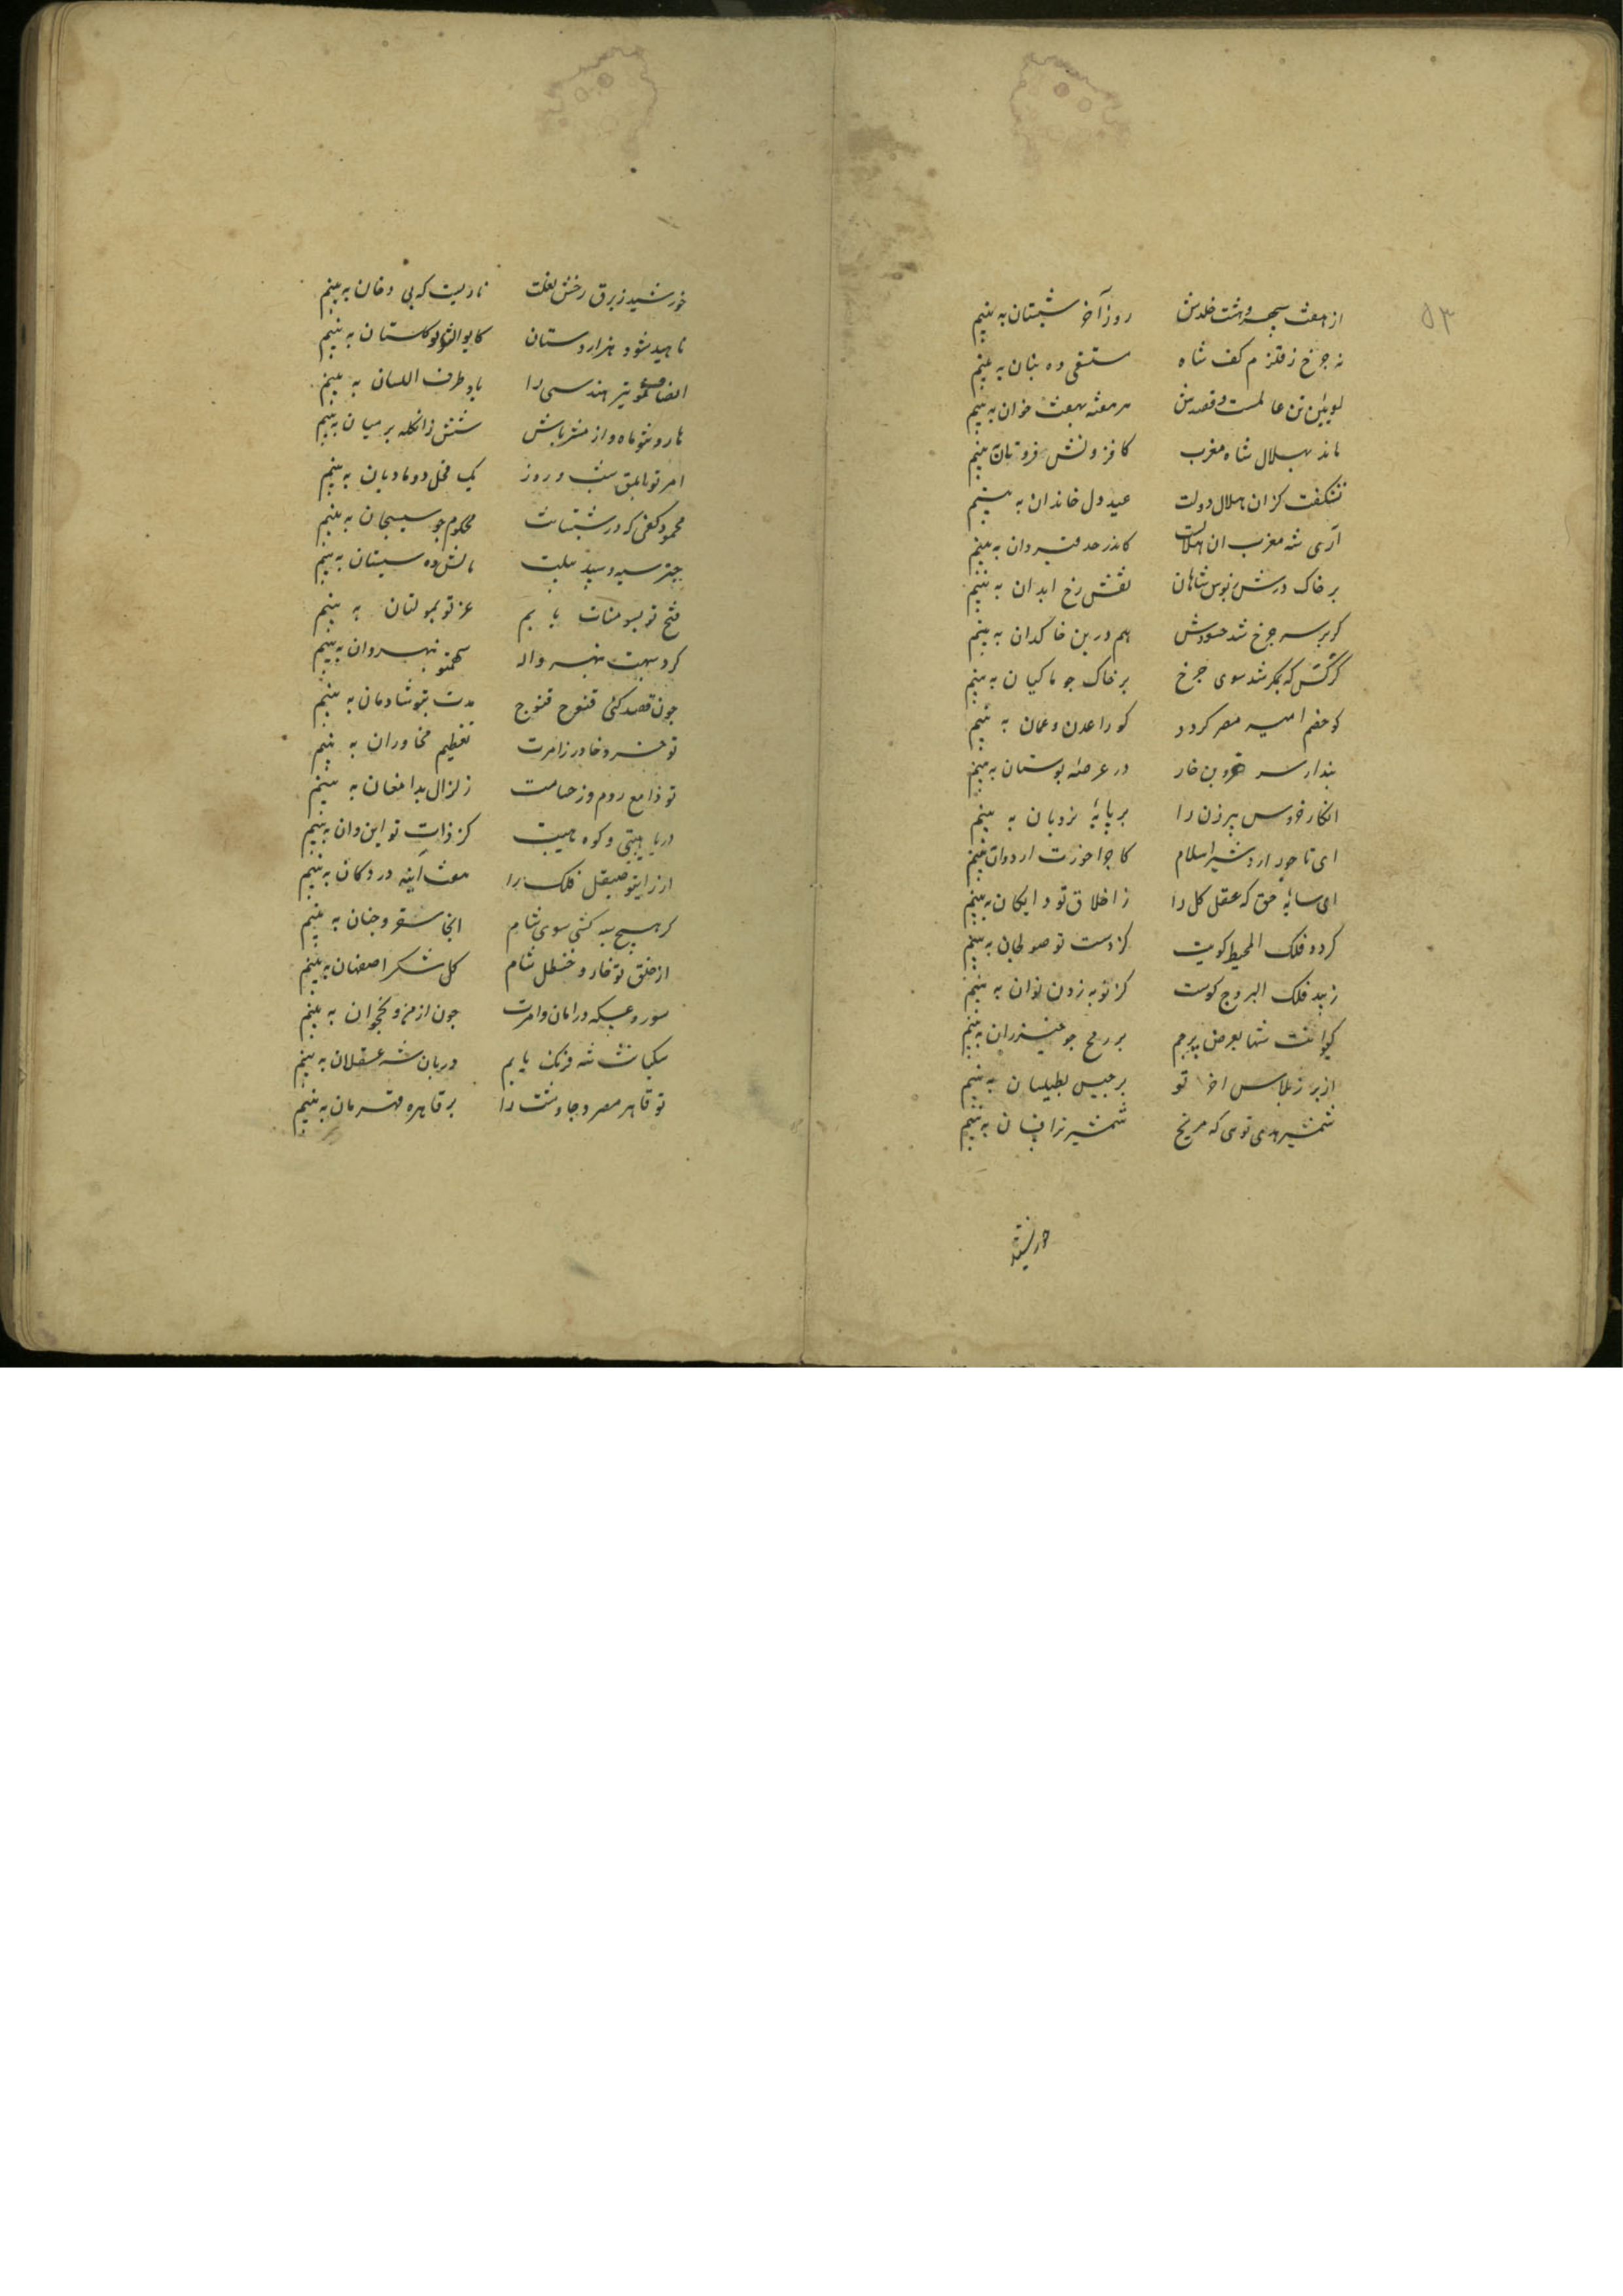 ۵۳
از هفت سپهر و هشت خلدش روز آخر شبستان به بینم
نه چرخ ز قلزم کف شاه مستسقی ده بنان به بینم
لوبیئن تن عالمست و قصدش هر هفته بهفت خوان به بینم
ماند بهلال شاه مغرب کافزونش فروتیان به بینم
نشکفت کزان هلال دولت عید دل خاندان به بینم
آری شه مغرب ان هلالست کاندر حد قیروان به بینم
بر خاک درش ز بوس شاهان نقش رخ ابدان به بینم
کر بر سر چرخ شد حسودش هم درین خاکدان به بینم
کرکس که بمکر شد سوی چرخ بر خاک جو ماکیان به بینم
کو خصم امیر مصر کردد کورا عدن و عمان به بینم
بندار سر خروبن خار در عرصه بوستان به بینم
انکار خروس پیرزن را بر پایهٔ نردبان به بینم
ای تاجور اردشیر اسلام کاجرا خورت اردوان به بینم
ای سایهٔ حق که عقل کل را ز اخلاق تو دایکان به بینم
کردد فلک المحیط کویت کز دست تو صولجان به بینم
زیبد فلک البروج کوست کز نوبه زدن نوان به بینم
کیوانت شها بعرض پرچم بر رمح جو خیزران به بینم
از بر ز طلا س اخ تو برجیس بطیلسان به بینم
شمشیر هدی توی که مریخ شمشیر ترا فسان به بینم
خورشید
خورشید ز برق رخش نعلت ناریست که بی دخان به بینم
ناهید شود هزار دستان کایوان تو کلستان به بینم
انصاف تو تیر هندسی را با و طرف اللسان به بینم
هارو تو ماه و از ثریاش شش زنکله بر میان به بینم
امر تو باابلق شب و روز یک فحل دو مادیان به بینم
محمود کفی که در شبستانت محکوم جو سیسجان به بینم
چتر سیه و سپید پیلت مالش ده سیستان به بینم
فتح تو بسومنات یابم عز تو بمولتان به بینم
کرد سپهت بنهرواله سهمت بنهروان به بینم
چون قصد کنی قنوج قنوج مدت بتو شادمان به بینم
تو خسرو خاور ز امرت تعظیم بخاوران به بینم
تو دامغ روم وز حسامت زلزال بدامغان به بینم
دریا هیبتی و کوه هیبت کز ذات تو این دوان به بینم
از رای تو صیقل فلک را هفت آینه در دکان به بینم
کر هیچ سپه کشی سوی شام انجا سقر و جنان به بینم
از خلق تو خار و حنظل شام کل شکر اصفهان به بینم
سور و عسکه در امان و امرت چون ارمن و نخجوان به بینم
سکبات شه فرنک یابم دربان شه عسقلان به بینم
تو قاهر مصر و جاوشت را بر قاهره قهرمان به بینم